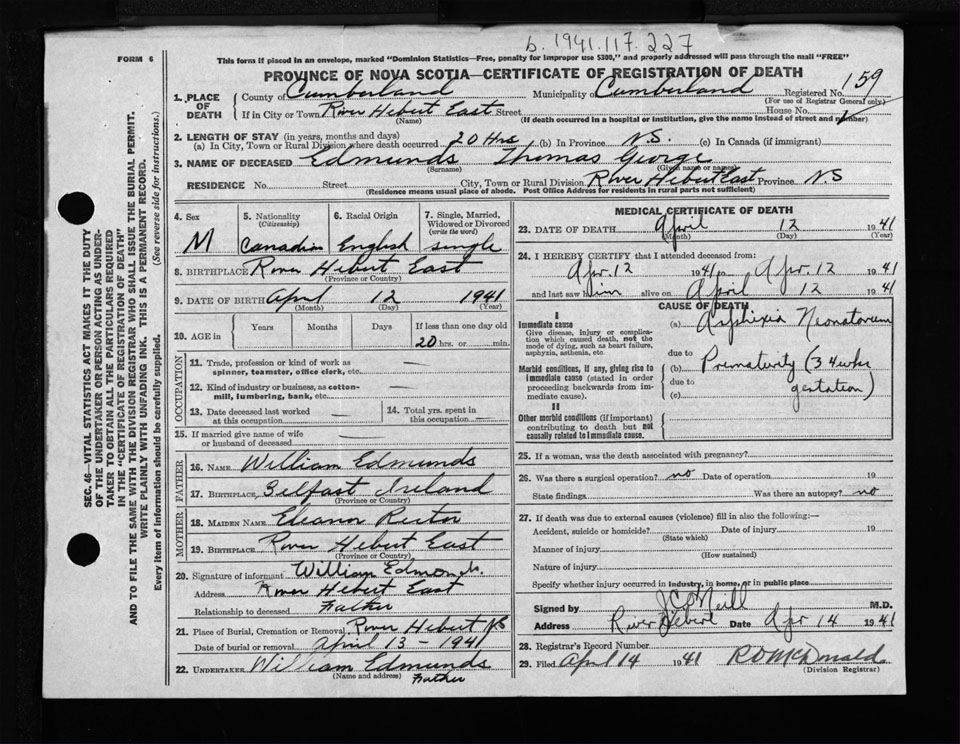 b. 1941.117.227
FORM 6
This form if placed in an envelope, marked "Dominion Statistics—Free, penalty for improper use $300," and properly addressed will pass through the mail "FREE"
PROVINCE OF NOVA SCOTIA—CERTIFICATE OF REGISTRATION OF DEATH
1. PLACE OF DEATH
County of Cumberland Municipality of Cumberland Registered No. 159
(For use of Registrar General only.)
If in City or Town River Hebert East Street House No.
(Name) (If death occurred in a hospital or institution, give the name instead of street and number)
2. LENGTH OF STAY (in years, months and days)
(a) In City, Town or Rural Division where death occurred 20 Hrs (b) In Province N.S. (c) In Canada (if immigrant)
3. NAME OF DECEASED Edmunds Thomas George
(Surname) (Given name or names)
RESIDENCE No. Street City, Town or Rural Division River Hebert East Province N.S
(Residence means usual place of abode. Post Office Address for residents in rural parts not sufficient)
4. Sex M
5. Nationality (Citizenship) Canadian
6. Racial Origin English
7. Single, Married, Widowed or Divorced (write the word) single
8. BIRTHPLACE River Hebert East
(Province or Country)
9. DATE OF BIRTH April 12 1941
(Month) (Day) (Year)
10. AGE in Years Months Days If less than one day old
20 hrs. or min.
OCCUPATION
11. Trade, profession or kind of work as spinner, teamster, office clerk, etc. —
12. Kind of industry or business, as cotton-mill, lumbering, bank, etc. —
13. Date deceased last worked at this occupation —
14. Total yrs. spent in this occupation —
15. If married give name of wife or husband of deceased —
FATHER
16. NAME William Edmunds
17. BIRTHPLACE Belfast Ireland
(Province or Country)
MOTHER
18. MAIDEN NAME Eleanor
19. BIRTHPLACE River Hebert East
(Province or Country)
20. Signature of informant William Edmonds.
Address River Hebert East
Relationship to deceased Father
21. Place of Burial, Cremation or Removal River Hebert N.S
Date of burial or removal April 13 - 1941
22. UNDERTAKER William Edmunds
(Name and address) Father
MEDICAL CERTIFICATE OF DEATH
23. DATE OF DEATH April 12 1941
(Month) (Day) (Year)
24. I HEREBY CERTIFY that I attended deceased from:
Apr. 12 1941 to Apr. 12 1941
and last saw him alive on April 12 1941
CAUSE OF DEATH
I
Immediate cause
Give disease, injury or complication which caused death, not the mode of dying, such as heart failure, asphyxia, asthenia, etc.
(a) Asphixia Neonatorum
due to
Morbid conditions, if any, giving rise to immediate cause (stated in order proceeding backwards from immediate cause).
(b) Prematurity (34 wks gestation)
due to
(c)
II
Other morbid conditions (if important) contributing to death but not causally related to immediate cause.
25. If a woman, was the death associated with pregnancy?
26. Was there a surgical operation? no Date of operation 19
State findings Was there an autopsy? no
27. If death was due to external causes (violence) fill in also the following:—
Accident, suicide or homicide? Date of injury 19
(State which)
Manner of injury
(How sustained)
Nature of injury
Specify whether injury occurred in industry, in home, or in public place
Signed by M.D.
Address River Hebert Date Apr 14 1941
28. Registrar's Record Number
29. Filed April 14 1941 R.D. McDonald
(Division Registrar)
SEC. 46—VITAL STATISTICS ACT MAKES IT THE DUTY
OF THE UNDERTAKER OR PERSON ACTING AS UNDER-
TAKER TO OBTAIN ALL THE PARTICULARS REQUIRED
IN THE "CERTIFICATE OF REGISTRATION OF DEATH"
AND TO FILE THE SAME WITH THE DIVISION REGISTRAR WHO SHALL ISSUE THE BURIAL PERMIT.
WRITE PLAINLY WITH UNFADING INK. THIS IS A PERMANENT RECORD.
Every item of information should be carefully supplied. (See reverse side for instructions.)